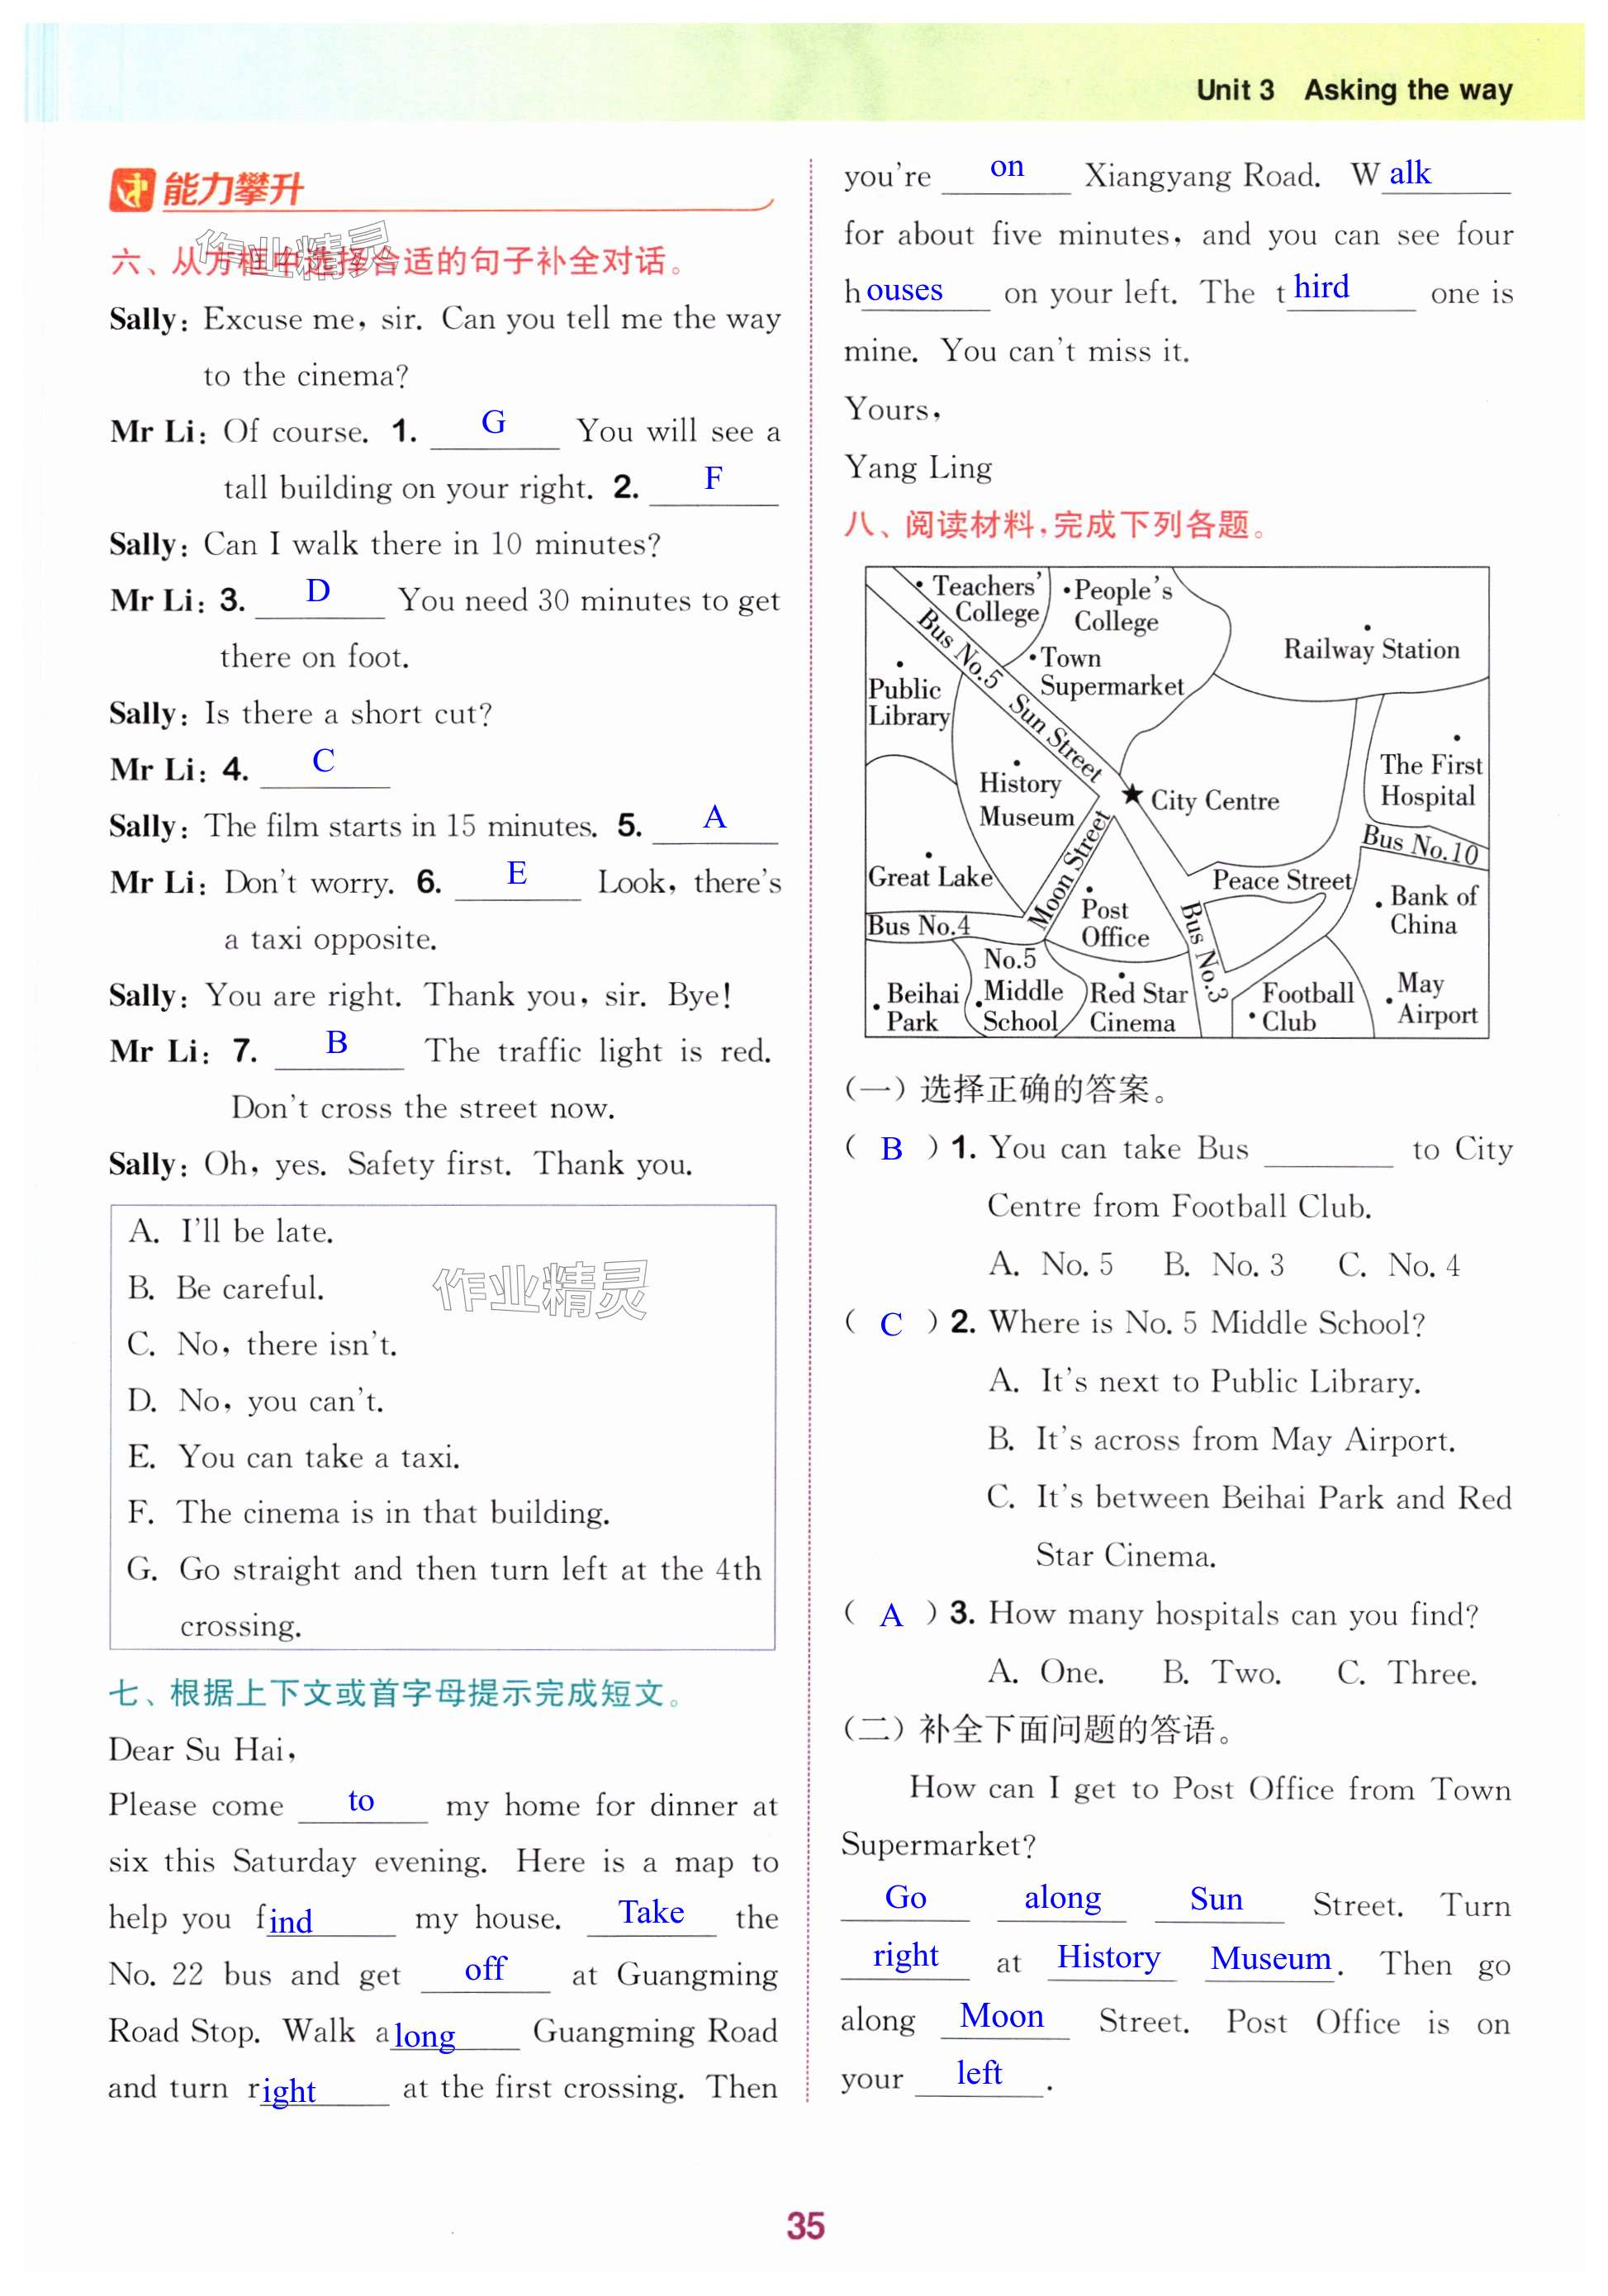 Unit 3 Asking the way
能力攀升
六、从方框中选择合适的句子补全对话。
作业精灵
Sally: Excuse me, sir. Can you tell me the way
to the cinema?
Mr Li: Of course. 1. G You will see a
tall building on your right. 2. F
Sally: Can I walk there in 10 minutes?
Mr Li: 3. D You need 30 minutes to get
there on foot.
Sally: Is there a short cut?
Mr Li: 4. C
Sally: The film starts in 15 minutes. 5. A
Mr Li: Don't worry. 6. E Look, there's
a taxi opposite.
Sally: You are right. Thank you, sir. Bye!
Mr Li: 7. B The traffic light is red.
Don't cross the street now.
Sally: Oh, yes. Safety first. Thank you.
A. I'll be late.
B. Be careful.
作业精灵
C. No, there isn't.
D. No, you can't.
E. You can take a taxi.
F. The cinema is in that building.
G. Go straight and then turn left at the 4th
crossing.
七、根据上下文或首字母提示完成短文。
Dear Su Hai,
Please come to my home for dinner at
six this Saturday evening. Here is a map to
help you find my house. Take the
No. 22 bus and get off at Guangming
Road Stop. Walk along Guangming Road
and turn right at the first crossing. Then
you're on Xiangyang Road. Walk
for about five minutes, and you can see four
houses on your left. The third one is
mine. You can't miss it.
Yours,
Yang Ling
八、阅读材料,完成下列各题。
Teachers'
College
People's
College
Railway Station
Bus No.5
Town
Supermarket
Public
Library
Sun Street
History
Museum
City Centre
The First
Hospital
Bus No.10
Great Lake
Moon Street
Peace Street
Post
Office
Bank of
China
Bus No.4
Bus No.3
No.5
Middle
School
Beihai
Park
Red Star
Cinema
Football
Club
May
Airport
(一)选择正确的答案。
( B ) 1. You can take Bus ______ to City
Centre from Football Club.
A. No. 5 B. No. 3 C. No. 4
( C ) 2. Where is No. 5 Middle School?
A. It's next to Public Library.
B. It's across from May Airport.
C. It's between Beihai Park and Red
Star Cinema.
( A ) 3. How many hospitals can you find?
A. One. B. Two. C. Three.
(二)补全下面问题的答语。
How can I get to Post Office from Town
Supermarket?
Go along Sun Street. Turn
right at History Museum. Then go
along Moon Street. Post Office is on
your left.
35